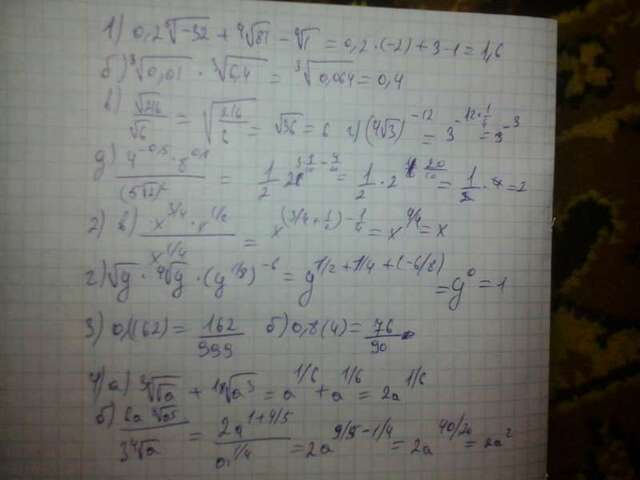 1) 0,2 ⁵√-32 + ⁴√81 - √1 = 0,2·(-2) + 3-1 = 1,6
б) ³√0,01 · ³√6,4 = ³√0,064 = 0,4
в) √216/√6 = √(216/6) = √36 = 6 г) (⁴√3)⁻¹² = 3^(-12·1/4) = 3⁻³
= 1/2 · 2 = 1/2 · 2 = 1/2 · 4 = 2
2) в) x^(3/4) · x^(1/2) / x^(1/4) = x^((3/4+1/2)-1/4) = x^(4/4) = x
г) √y · ⁴√y · (y^(1/8))⁻⁶ = y^(1/2+1/4+(-6/8)) = y⁰ = 1
3) 0,(162) = 162/999 б) 0,8(4) = 76/90
4) а) ³√√a + ¹⁸√a³ = a^(1/6) + a^(1/6) = 2a^(1/6)
б) = 2a^(1+4/5) / a^(1/4) = 2a^(9/5-1/4) = 2a^(40/20) = 2a²